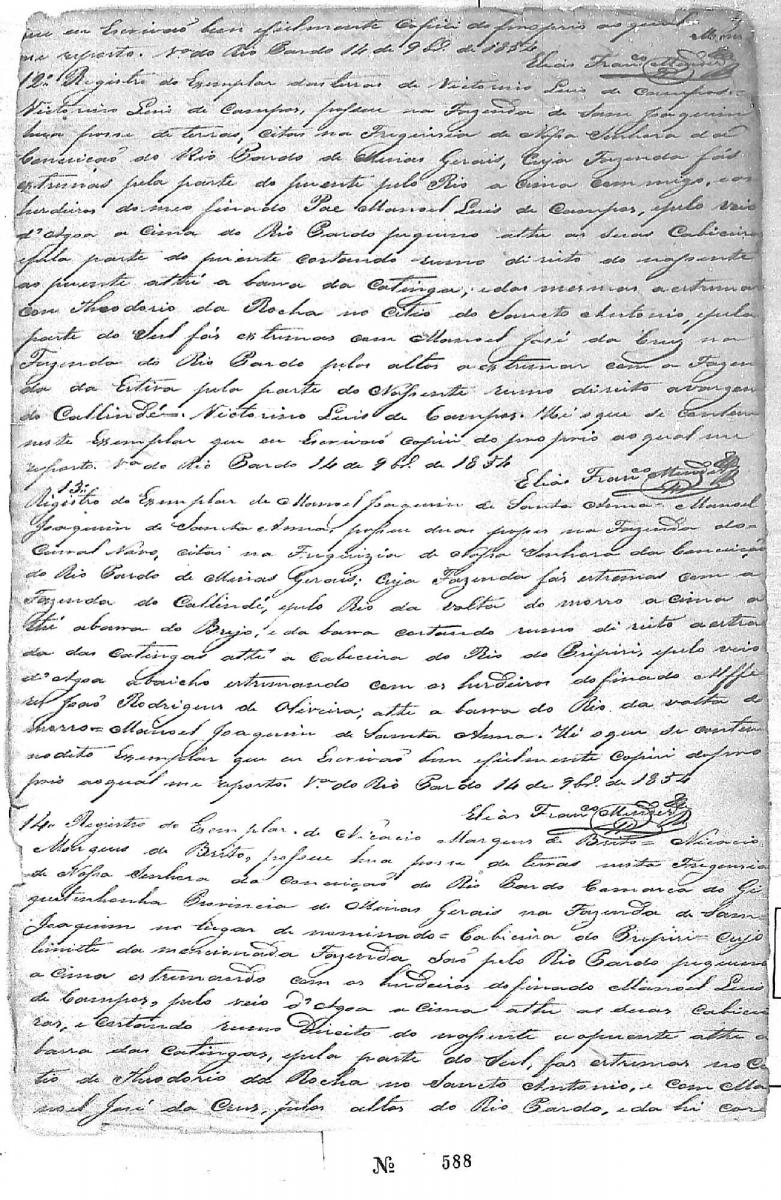 eu Escrivaõ bem efielmente Copiei do proprio aoqual
me reporto. Vª do Rio Pardo 14 de 9br.º de 1854
Elias Franco Mendes
12ª Registro do Exemplar das terras de Victorino Luis de Campos =
Victorino Luis de Campos, possue na Fazenda de Sam Joaquim
hua posse de terras, citas na Freguisia de Nossa Senhora da
Conceicaõ do Rio Pardo de Minas Gerais, Cuja Fazenda fás
extremas pela parte do puente pelo Rio a cima com migo, e os
herdeiros do meo finado Pae Manoel Luis de Campos, epelo veio
d'Agoa a Cima do Rio Pardo piqueno athe as suas Cabiceiras
epela parte do puente cortando rumo direito do naçente
ao puente athé a barra da Catinga, e das mesmas a extremar
com Theodorio da Rocha no Citio do Sancto Antonio, epela
parte do Sul fás extremas com Manoel José da Cruz na
Fazenda do Rio Pardo pelos altos a extremar com a Fazen
da da Estiva pela parte do Nassente rumo direito a vargem
do Callindé = Victorino Luis de Campos. Hé oque se contem
neste Exemplar que eu Escrivaõ copiei do proprio ao qual me
reporto. Vª do Rio Pardo 14 de 9br.º de 1854
Elias Franco Mendes
13ª
Registro do Exemplar de Manoel Joaquim de Santa Anna = Manoel
Joaquim de Sancta Anna, possue duas posses na Fazenda do
Curral Novo, citas na Freguizia de Nossa Senhora da Conceiçaõ
do Rio Pardo de Minas Gerais; Cuja Fazenda fás extremas com a
Fazenda do Callindé, epelo Rio da volta do morro a cima a
thé a barra do Brejo, e da barra cortando rumo direito a estra
da das Catingas athé a Cabiceira do Rio do Piripiri, epelo veio
d'Agoa abaicho extremando com os herdeiros do finado Alffe
res Joaõ Rodrigues de Oliveira, athe a barra do Rio da volta do
morro = Manoel Joaquim de Samta Anna. Hé oque se contem
no dito Exemplar que eu Escrivaõ bem efielmente Copiei do pro
prio aoqual me reporto. Vª do Rio Pardo 14 de 9br.º de 1854
Elias Franco Mendes
14ª Registro do Exemplar de Nicacio Marques de Brito = Nicacio
Marques de Brito, possue hua posse de terras nesta Freguesia
de Nossa Senhora da Conceiçaõ do Rio Pardo Comarca do Gi
quitinhonha Provincia de Minas Gerais na Fazenda de Sam
Joaquim no lugar de nominado = Cabiceira do Piripiri = Cujo
limite da mencionada Fazenda Saõ pelo Rio Pardo piqueno
a cima extremando com os herdeiros do finado Manoel Luis
de Campos, pelo veio d'Agoa a cima athe as suas cabicei
ras, e cortando rumo direito do nassente a opuente athe a
barra das Catingas, epela parte do Sul, fas extremas no Ci
tio de Theodorio da Rocha no Sancto Antonio, e com Ma
noel José da Cruz, pelos altos do Rio Pardo, e da hi cor
Nº 588